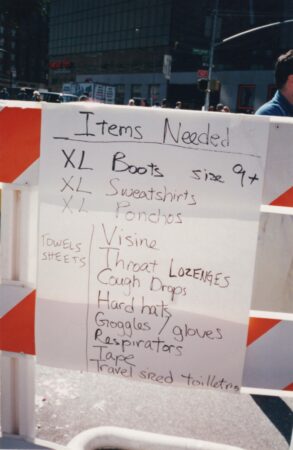 Items Needed
XL Boots size 9+
XL Sweatshirts
XL Ponchos
TOWELS
SHEETS
Visine
Throat LOZENGES
Cough Drops
Hard hats
Goggles / gloves
Respirators
Tape
Travel sized toilletries